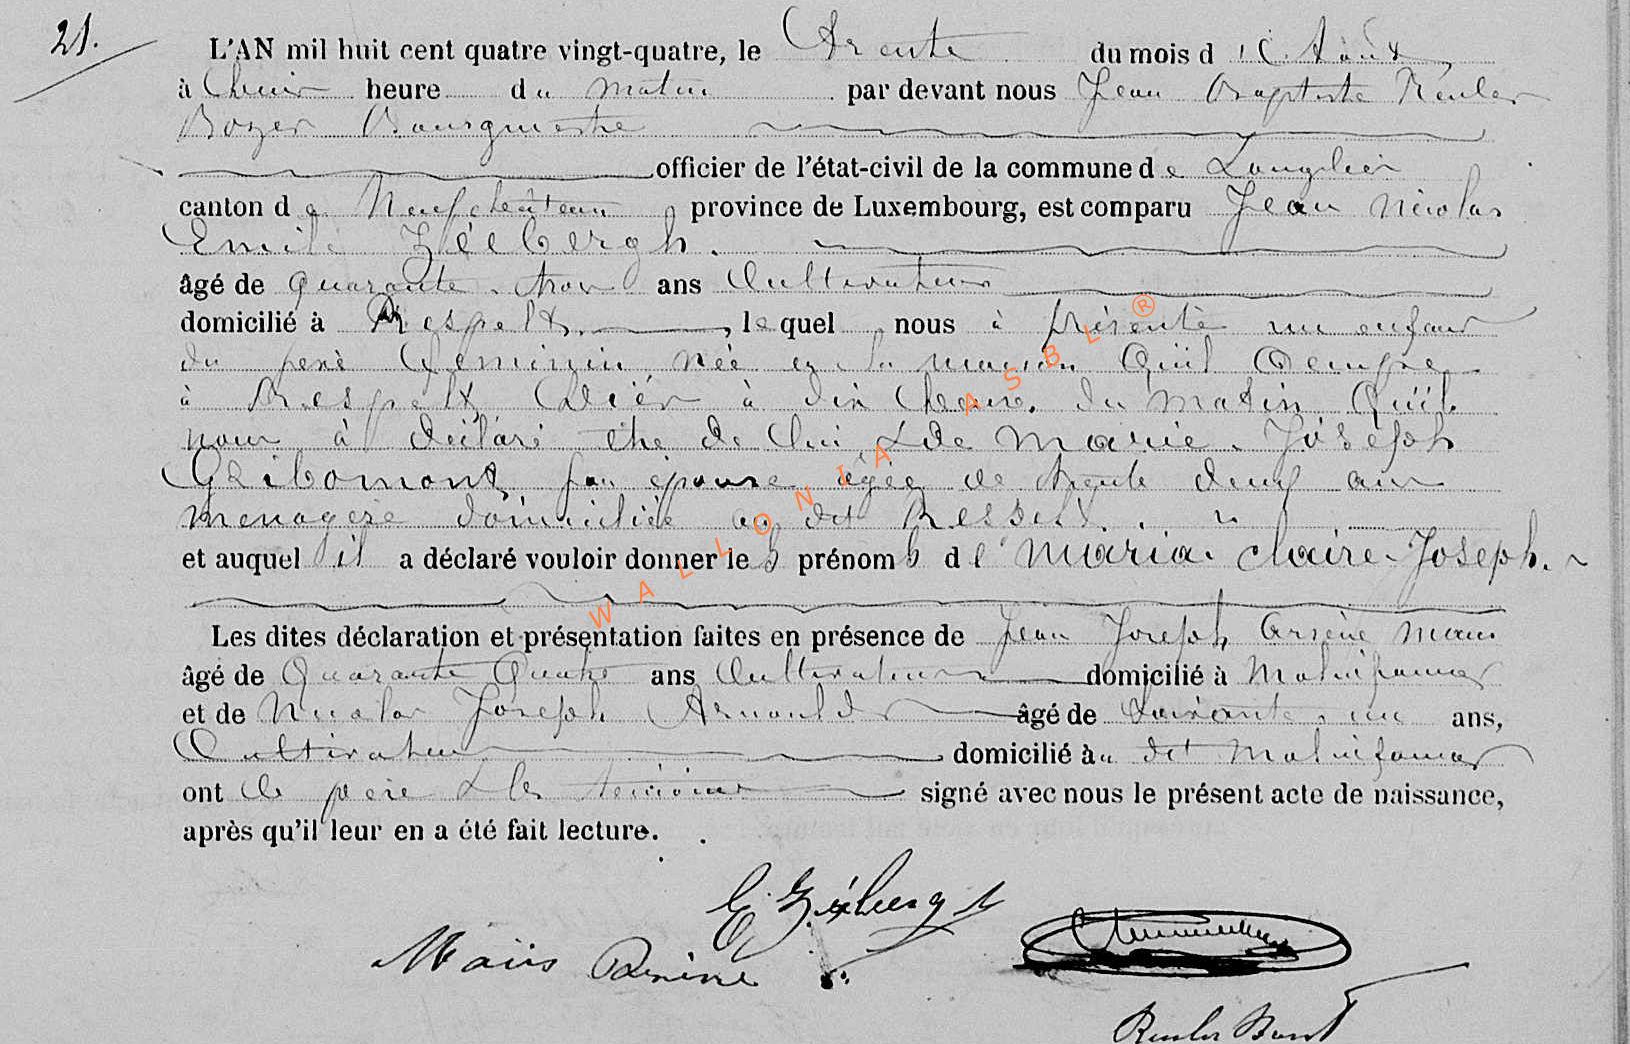 21.
L'AN mil huit cent quatre vingt-quatre, le Trente du mois d'Août
à heure du matin par devant nous Jean Baptiste Reuler
Bozer Bourgmestre
officier de l'état-civil de la commune de Longlier
canton de Neufchâteau province de Luxembourg, est comparu Jean Nicolas
Emile Zéebergh.
âgé de quarante trois ans Cultivateur
domicilié à Respelt, lequel nous à présenté un enfant
du sexe féminin née en la maison Qu'il Occupe
à Respelt hier à dix heure du matin Qu'il
nous à déclaré être de lui & de Marie Joseph
Gribomont, son épouse âgée de trente deux ans
ménagère domiciliée au dit Respelt.
et auquel il a déclaré vouloir donner les prénoms de Maria. Claire. Joseph.
Les dites déclaration et présentation faites en présence de Jean Joseph Arsène Maus
âgé de Quarante Quatre ans Cultivateur domicilié à Molinfaing
et de Nicolas Joseph Arnould âgé de soixante un ans,
Cultivateur domicilié au dit Molinfaing
ont le père & les témoins signé avec nous le présent acte de naissance,
après qu'il leur en a été fait lecture.
WALLONIA ASBL ®